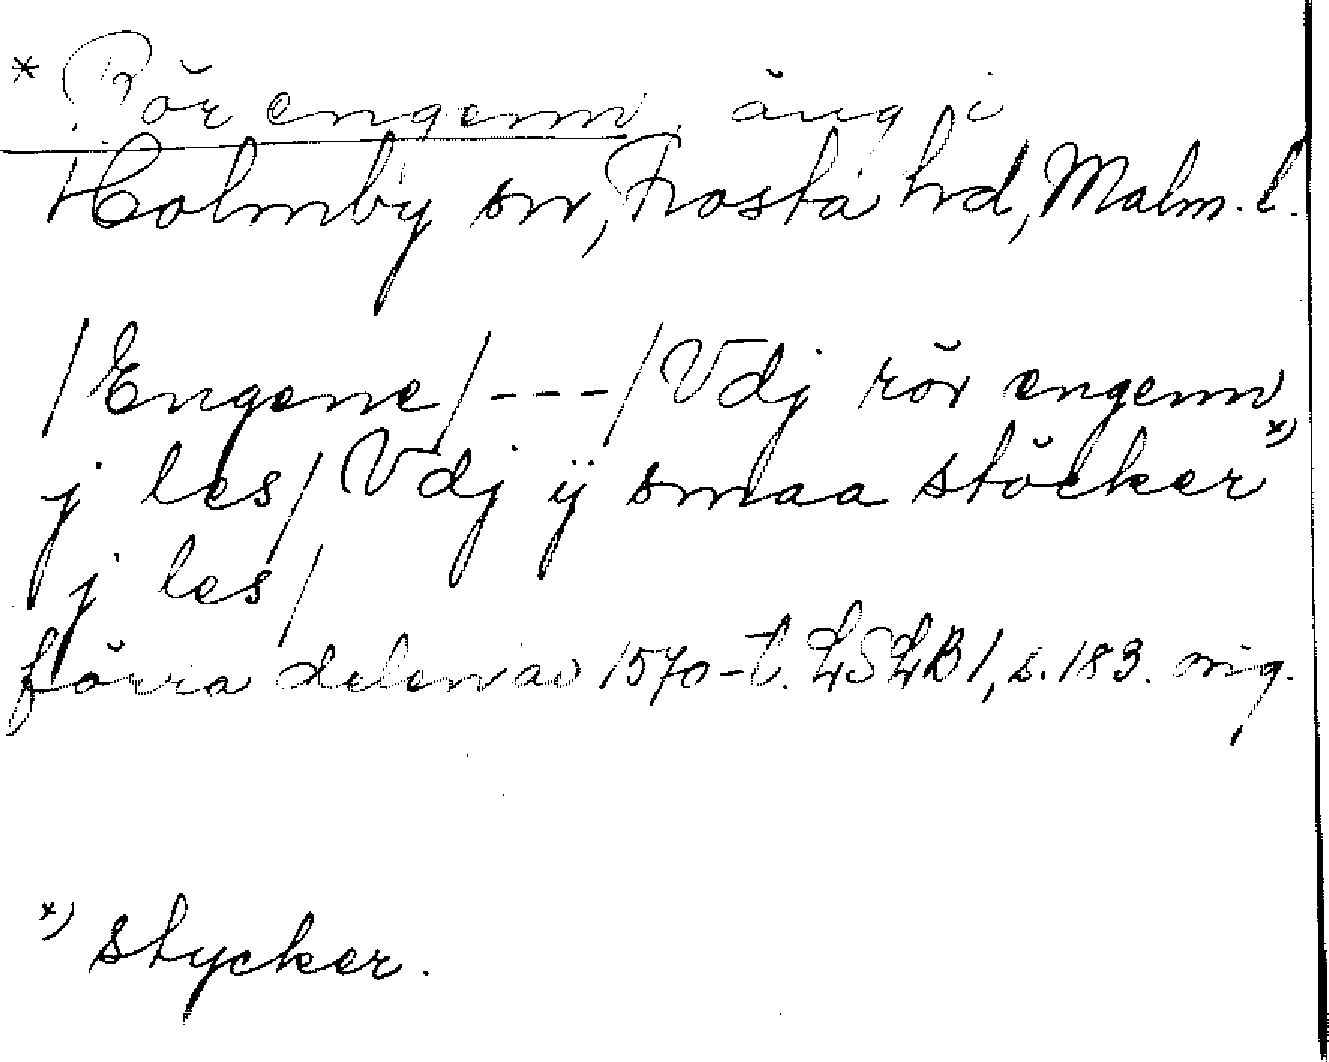 * Rör engenn, äng i
Holmby sn, Frosta hd, Malm. l.
/Engene/---/Vdj rör engenn
j les/Vdj ij smaa stöcker x)
j les/
förra delen av 1570-t. LSLB1, s. 183. orig.
x) stycker.